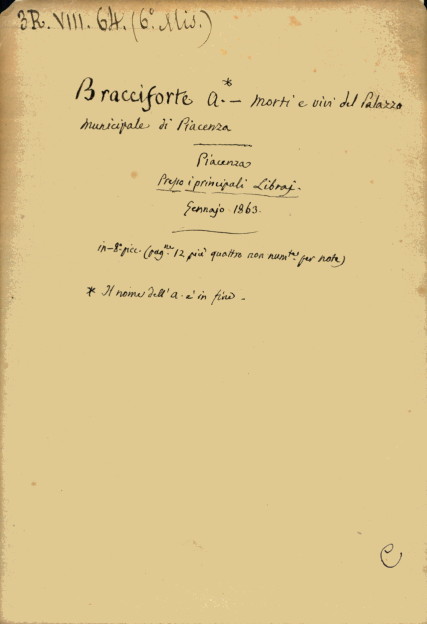 3R. VIII. 64. (6° Mis.)
Bracciforte A.* — Morti e vivi del Palazzo
municipale di Piacenza
Piacenza
Presso i principali Libraj.
Gennajo 1863.
in-8° picc. (pag.ne 12 più quattro non num.te per note)
* Il nome dell'a. è in fine.
C